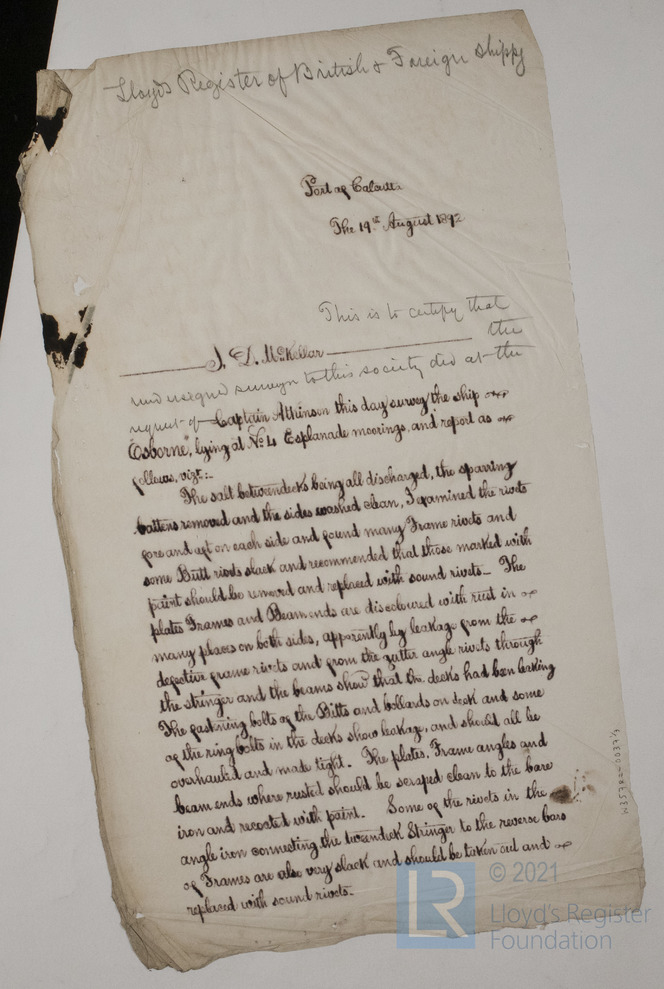 Lloyds Register of British & Foreign Shippg
Port of Calcutta
The 19th August 1892
This is to certify that
J. D. McKellar the
undersigned surveyor to this society did at the
request of Captain Atkinson this day survey the ship
"Osborne", lying at No 4 Esplanade moorings, and report as
follows, vizt:-
The salt betweendecks being all discharged, the sparring
battens removed and the sides washed clean, I examined the rivets
fore and aft on each side and found many Frame rivets and
some Butt rivets slack and recommended that those marked with
paint should be removed and replaced with sound rivets. The
plates Frames and Beam ends are discoloured with rust in
many places on both sides, apparently by leakage from the
defective frame rivets and from the gutter angle rivets through
the stringer and the beams show that the decks had been leaking
The fastening bolts of the Bitts and bollards on deck and some
of the ring bolts in the decks show leakage, and should all be
overhauled and made tight. The plates, Frame angles and
beam ends where rusted should be scraped clean to the bare
iron and recoated with paint. Some of the rivets in the
angle iron connecting the tweendeck Stringer to the reverse bars
of Frames are also very slack and should be taken out and
replaced with sound rivets.
© 2021
LR Lloyd's Register
Foundation